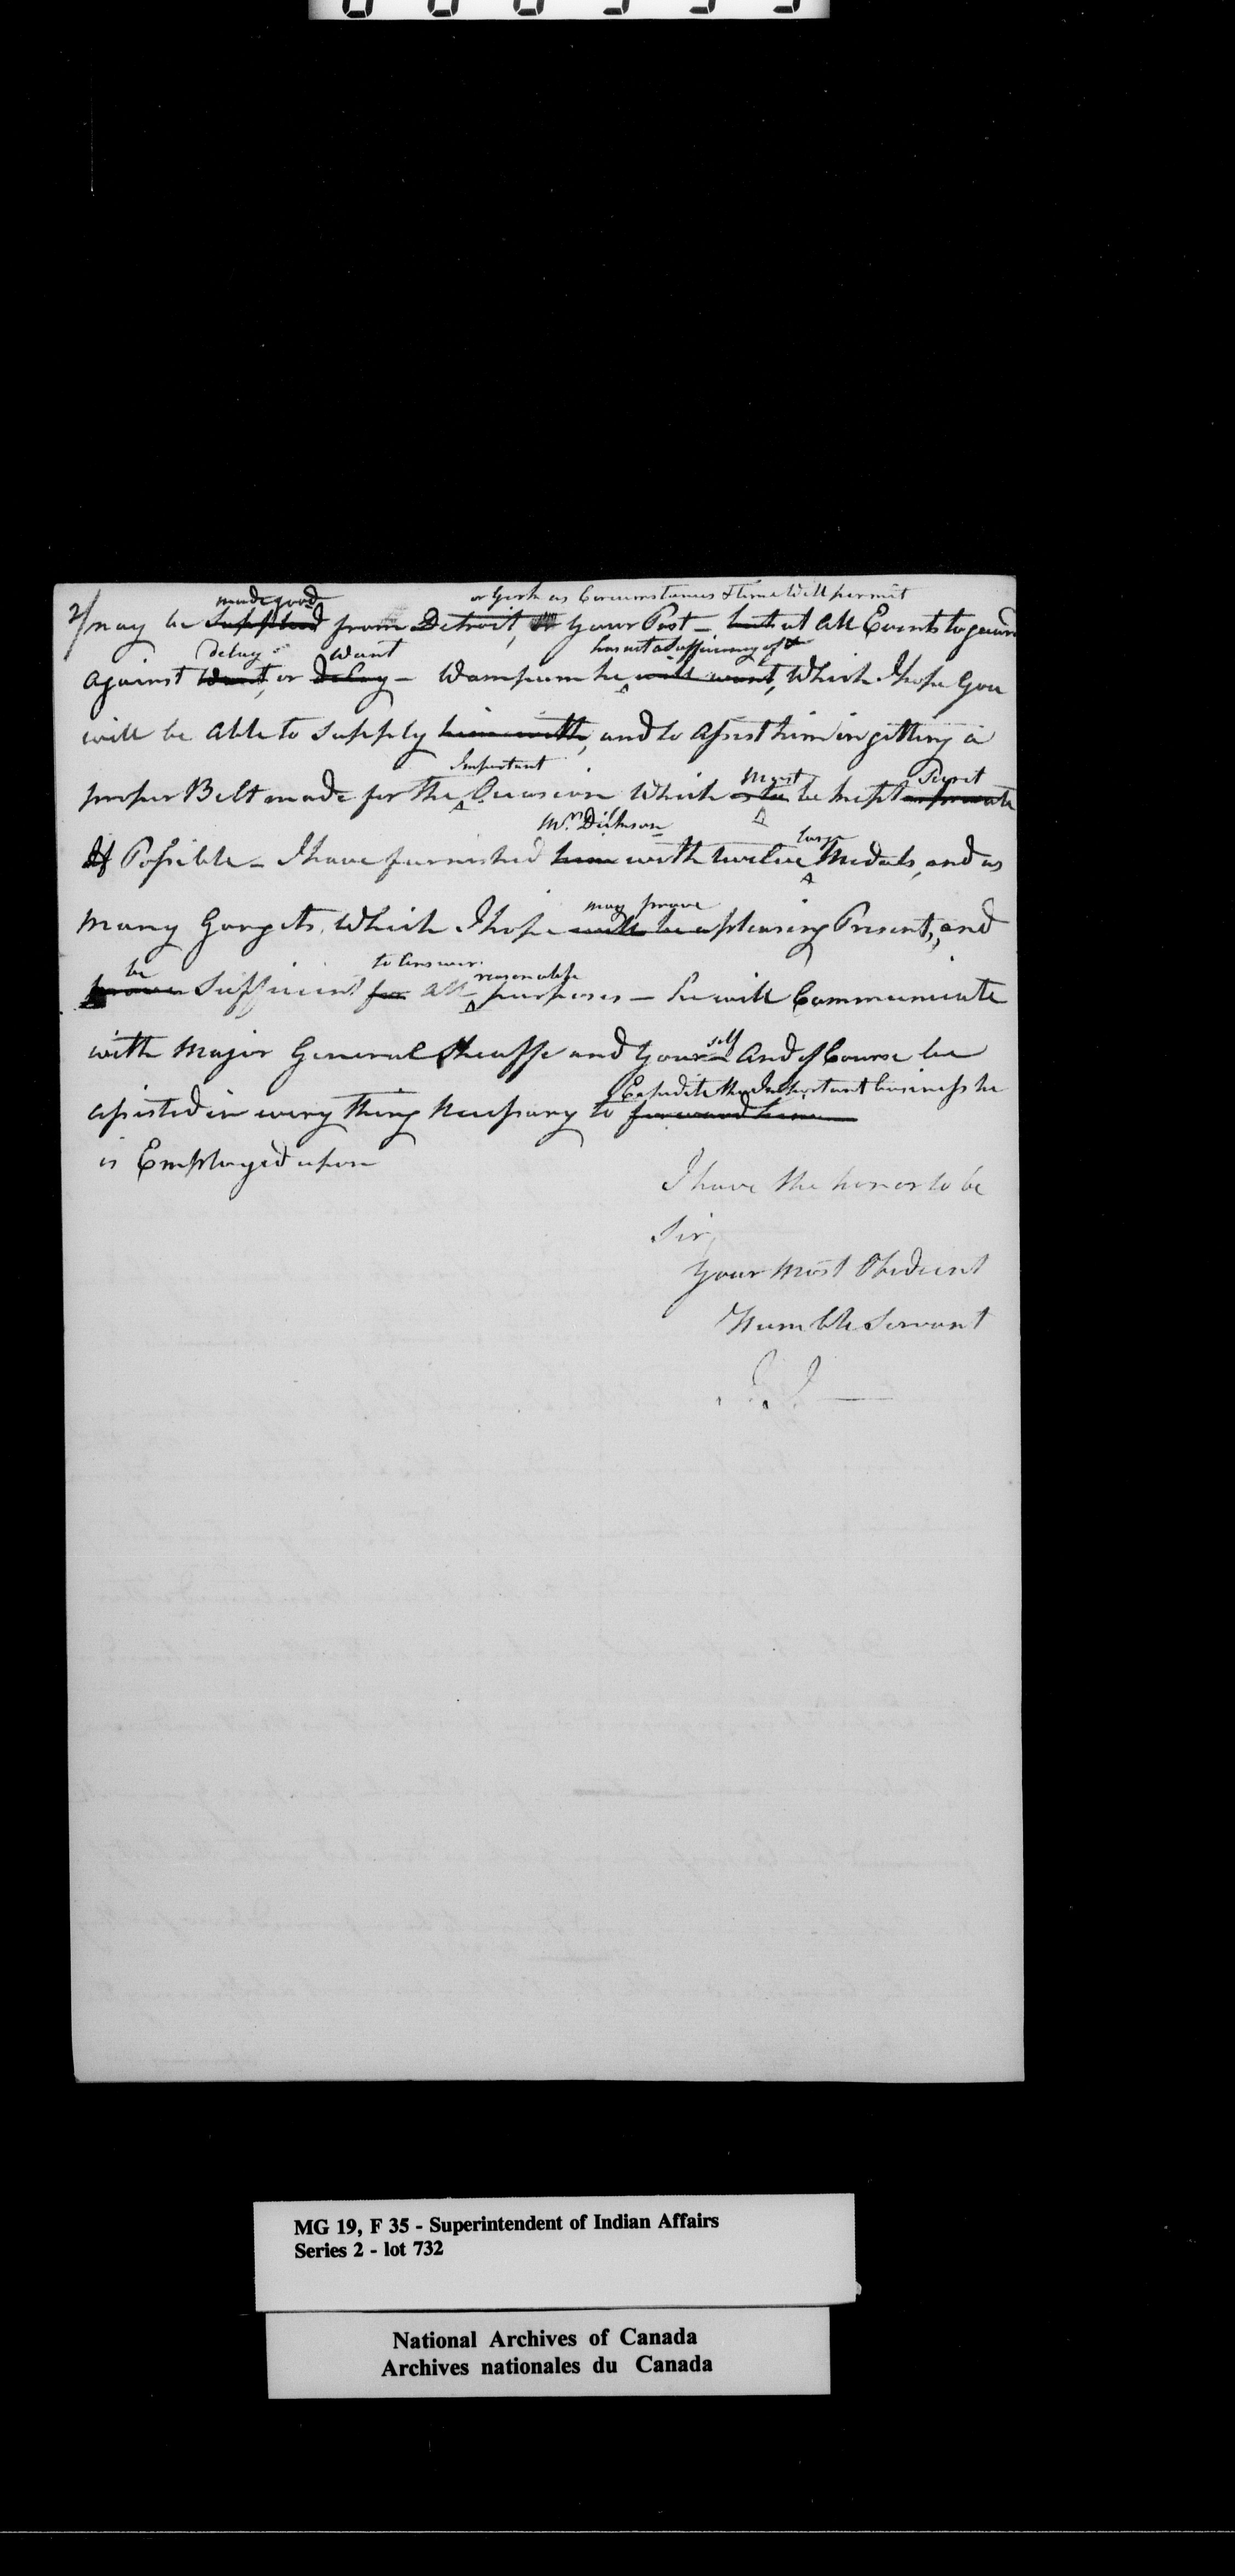 made good or York as Circumstances & time will permit
2/ may be Supplied from Detroit, or Your Post - but at all Events to guard
delay want has not a sufficiency of
against Want, or delay - Wampum he will want, Which I hope You
will be able to supply him with, and to assist him in gitting a
Important Must Secret
proper Belt made for the Occasion Which is to be kept as private
Mr. Dickson large
If Possible - I have furnished him with twelve Medals, and as
may prove
Many Gorgets, Which I hope will be a pleasing Present, and
be to Answer reasonable
prove Sufficient for all purposes - he will Communicate
self
with Major General Sheaffe and Your And of Course be
Expedite the Important business he
assisted in every thing Necessary to forward him
is Employed upon
I have the honor to be
Sir,
Your Most Obedient
Humble Servant
J. J.
MG 19, F 35 - Superintendent of Indian Affairs
Series 2 - lot 732
National Archives of Canada
Archives nationales du Canada